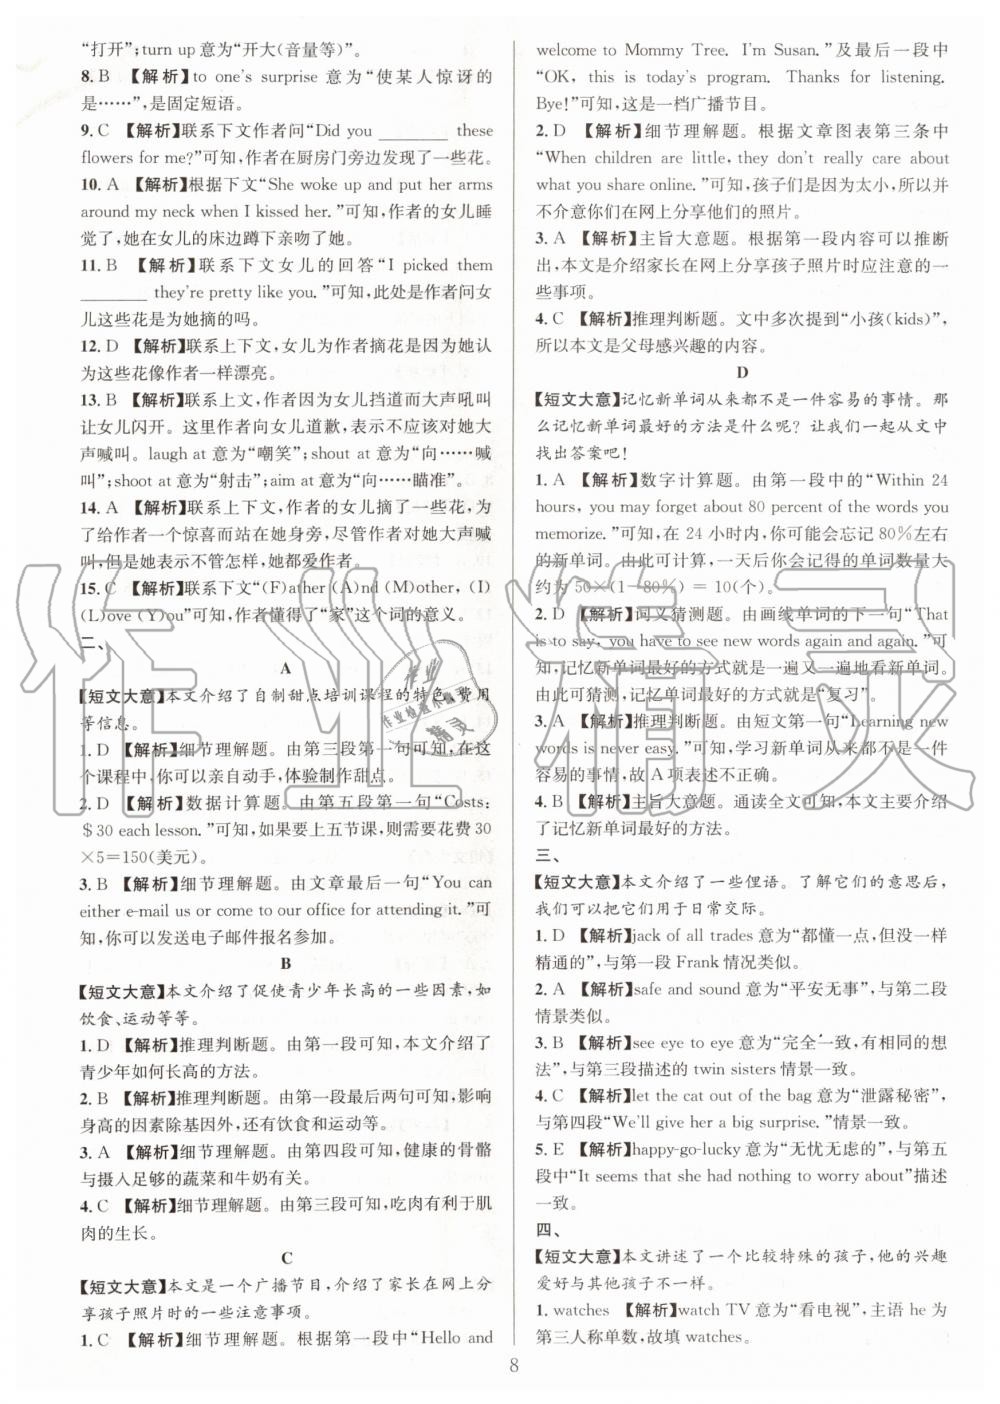 “打开”;turn up意为“开大(音量等)”。
8. B 【解析】to one's surprise 意为“使某人惊讶的
是……”,是固定短语。
9. C 【解析】联系下文作者问“Did you ________ these
flowers for me?”可知,作者在厨房门旁边发现了一些花。
10. A 【解析】根据下文“She woke up and put her arms
around my neck when I kissed her. ”可知,作者的女儿睡
觉了,她在女儿的床边蹲下亲吻了她。
11. B 【解析】联系下文女儿的回答“I picked them
________ they're pretty like you. ”可知,此处是作者问女
儿这些花是为她摘的吗。
12. D 【解析】联系上下文,女儿为作者摘花是因为她认
为这些花像作者一样漂亮。
13. B 【解析】联系上文,作者因为女儿挡道而大声吼叫
让女儿闪开。这里作者向女儿道歉,表示不应该对她大
声喊叫。laugh at 意为“嘲笑”;shout at 意为“向……喊
叫”;shoot at 意为“射击”;aim at 意为“向……瞄准”。
14. A 【解析】联系上下文,作者的女儿摘了一些花,为
了给作者一个惊喜而站在她身旁,尽管作者对她大声喊
叫,但是她表示不管怎样,她都爱作者。
15. C 【解析】联系下文“(F)ather (A)nd (M)other, (I)
(L)ove (Y)ou”可知,作者懂得了“家”这个词的意义。
二、
A
【短文大意】本文介绍了自制甜点培训课程的特色、费用
等信息。
1. D 【解析】细节理解题。由第三段第一句可知,在这
个课程中,你可以亲自动手,体验制作甜点。
2. D 【解析】数据计算题。由第五段第一句“Costs:
$30 each lesson. ”可知,如果要上五节课,则需要花费30
×5=150(美元)。
3. B 【解析】细节理解题。由文章最后一句“You can
either e-mail us or come to our office for attending it. ”可
知,你可以发送电子邮件报名参加。
B
【短文大意】本文介绍了促使青少年长高的一些因素,如
饮食、运动等等。
1. D 【解析】推理判断题。由第一段可知,本文介绍了
青少年如何长高的方法。
2. B 【解析】推理判断题。由第一段最后两句可知,影响
身高的因素除基因外,还有饮食和运动等。
3. A 【解析】细节理解题。由第四段可知,健康的骨骼
与摄入足够的蔬菜和牛奶有关。
4. C 【解析】细节理解题。由第三段可知,吃肉有利于肌
肉的生长。
C
【短文大意】本文是一个广播节目,介绍了家长在网上分
享孩子照片时的一些注意事项。
1. C 【解析】细节理解题。根据第一段中“Hello and
welcome to Mommy Tree. I'm Susan. ”及最后一段中
“OK, this is today's program. Thanks for listening.
Bye!”可知,这是一档广播节目。
2. D 【解析】细节理解题。根据文章图表第三条中
“When children are little, they don't really care about
what you share online. ”可知,孩子们是因为太小,所以并
不介意你们在网上分享他们的照片。
3. A 【解析】主旨大意题。根据第一段内容可以推断
出,本文是介绍家长在网上分享孩子照片时应注意的一
些事项。
4. C 【解析】推理判断题。文中多次提到“小孩(kids)”,
所以本文是父母感兴趣的内容。
D
【短文大意】记忆新单词从来都不是一件容易的事情。那
么记忆新单词最好的方法是什么呢?让我们一起从文中
找出答案吧!
1. A 【解析】数字计算题。由第一段中的“Within 24
hours, you may forget about 80 percent of the words you
memorize. ”可知,在 24 小时内,你可能会忘记 80%左右
的新单词。由此可计算,一天后你会记得的单词数量大
约为 50×(1-80%) = 10(个)。
2. D 【解析】词义猜测题。由画线单词的下一句“That
is to say, you have to see new words again and again. ”可
知,记忆新单词最好的方式就是一遍又一遍地看新单词。
由此可猜测,记忆新单词最好的方式就是“复习”。
3. A 【解析】推理判断题。由短文第一句“Learning new
words is never easy. ”可知,学习新单词从来都不是一件
容易的事情,故 A 项表述不正确。
4. B 【解析】主旨大意题。通读全文可知,本文主要介绍
了记忆新单词最好的方法。
三、
【短文大意】本文介绍了一些俚语。了解它们的意思后,
我们可以把它们用于日常交际。
1. D 【解析】jack of all trades 意为“都懂一点,但没一样
精通的”,与第一段 Frank 情况类似。
2. A 【解析】safe and sound 意为“平安无事”,与第二段
情景类似。
3. B 【解析】see eye to eye 意为“完全一致,有相同的想
法”,与第三段描述的 twin sisters 情景一致。
4. C 【解析】let the cat out of the bag 意为“泄露秘密”,
与第四段“We'll give her a big surprise. ”情景一致。
5. E 【解析】happy-go-lucky意为“无忧无虑的”,与第五
段中“It seems that she had nothing to worry about”描述
一致。
四、
【短文大意】本文讲述了一个比较特殊的孩子,他的兴趣
爱好与其他孩子不一样。
1. watches 【解析】watch TV 意为“看电视”,主语 he 为
第三人称单数,故填 watches。
8
作业精灵